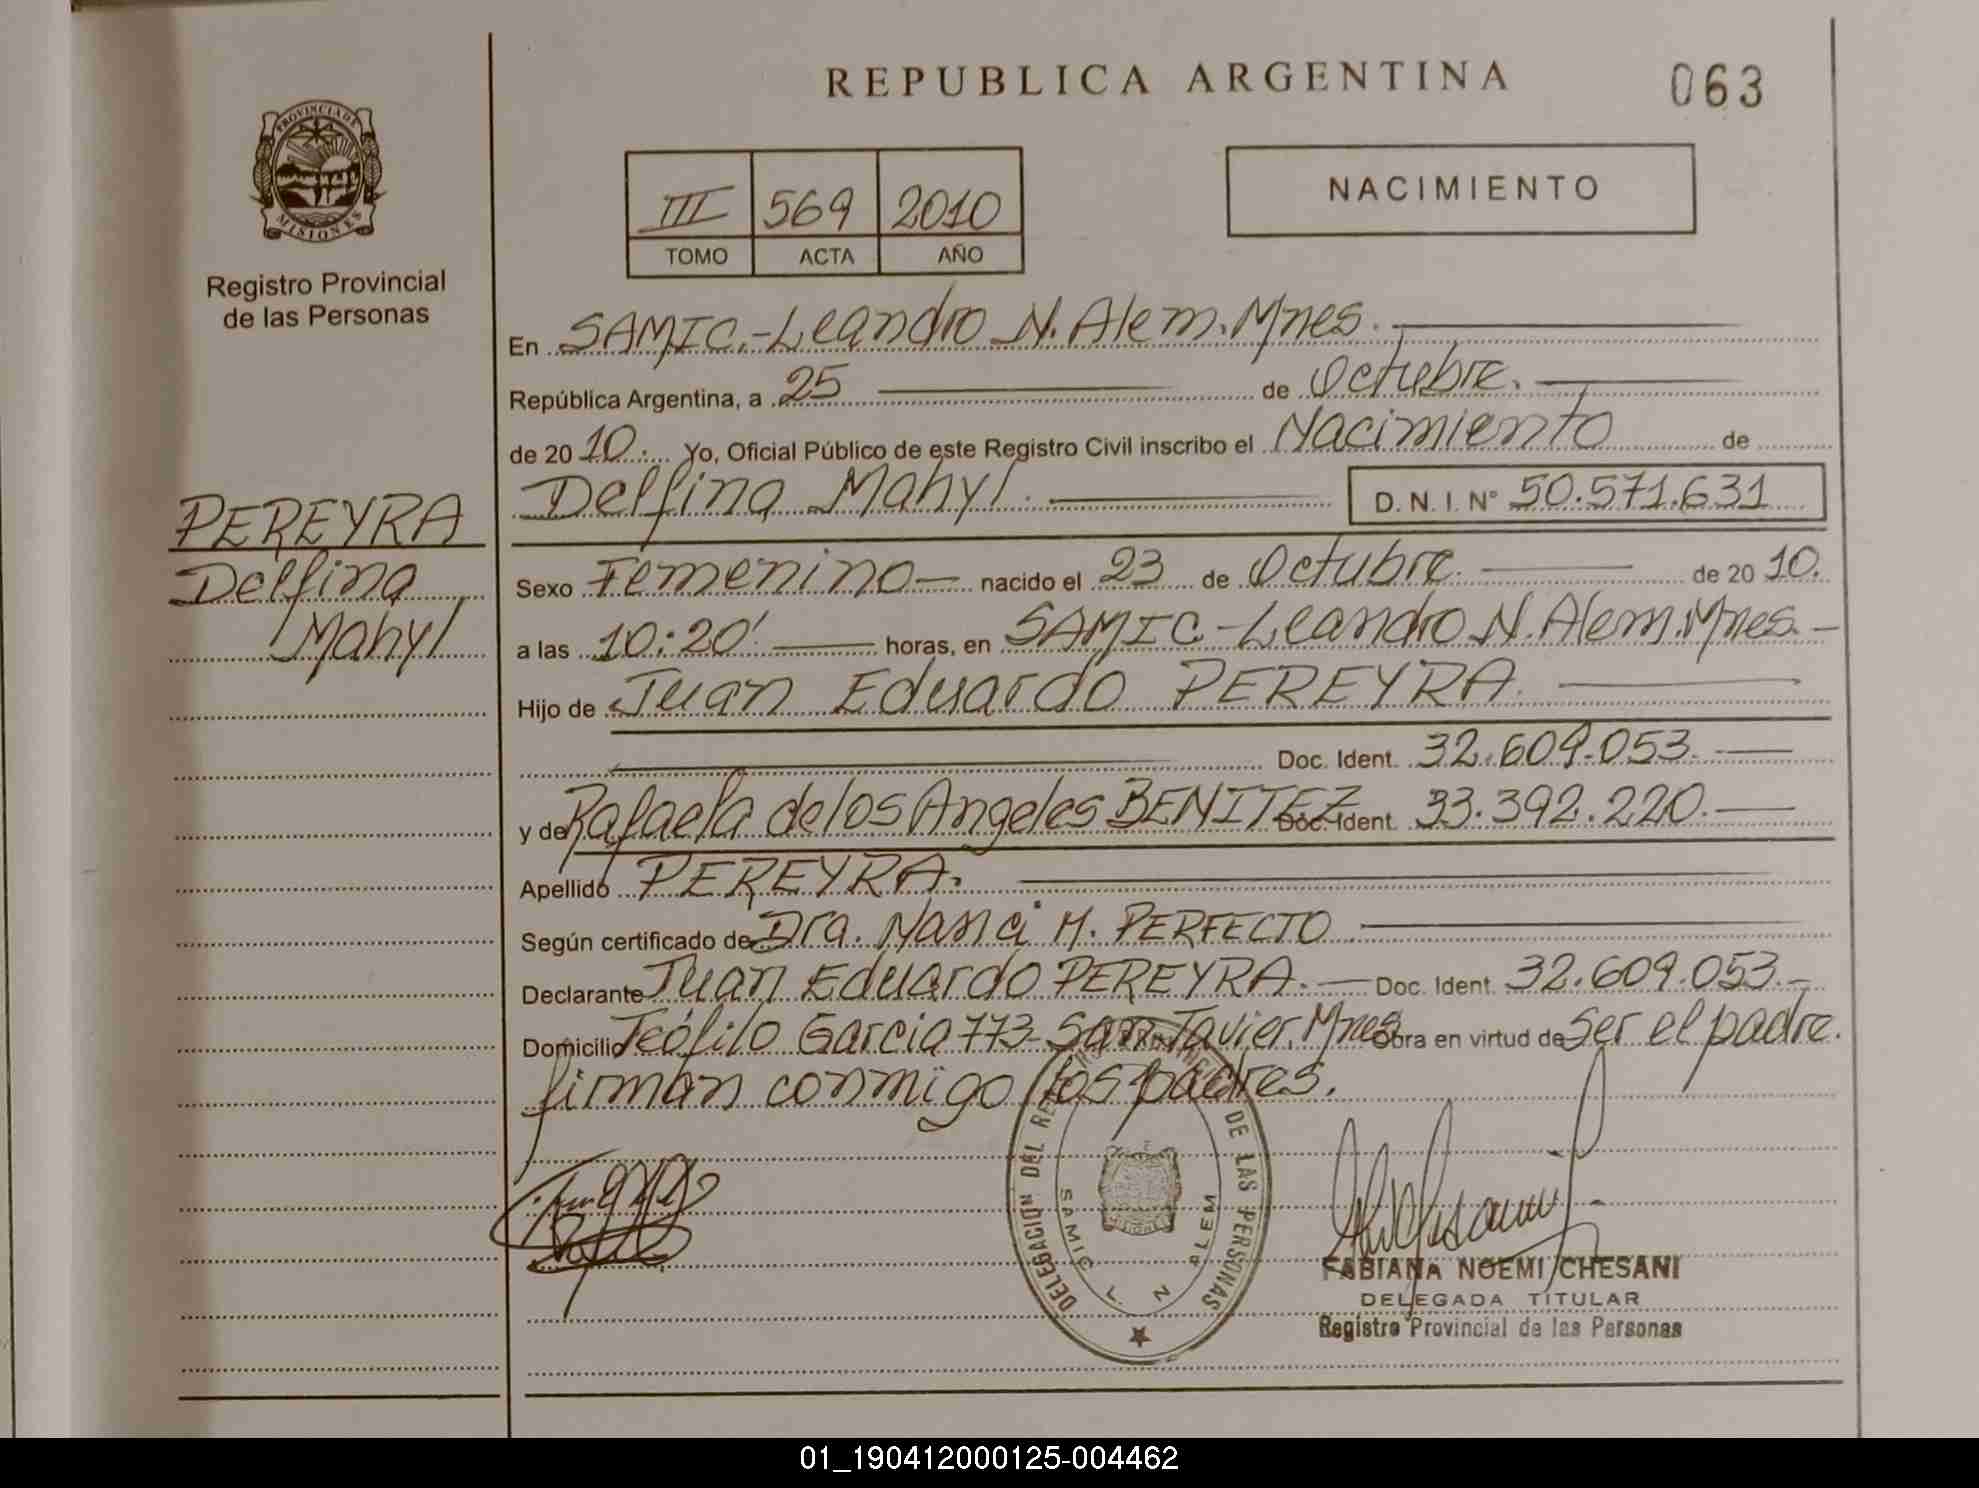 REPUBLICA ARGENTINA
063
PROVINCIA DE
MISIONES
Registro Provincial
de las Personas
III 569 2010
TOMO ACTA AÑO
NACIMIENTO
En SAMIC.-Leandro N. Alem. Mnes.
República Argentina, a 25 de Octubre.
de 20 10. Yo, Oficial Público de este Registro Civil inscribo el Nacimiento de
Delfina Mahyl. D. N. I. N° 50.571.631
PEREYRA
Delfina
Mahyl
Sexo Femenino nacido el 23 de Octubre. de 20 10.
a las 10:20' horas, en SAMIC-Leandro N. Alem. Mnes.-
Hijo de Juan Eduardo PEREYRA.
Doc. Ident. 32.609.053.
y de Rafaela de los Angeles BENITEZ Doc. Ident. 33.392.220.
Apellido PEREYRA.
Según certificado de Dra. Nanci M. PERFECTO
Declarante Juan Eduardo PEREYRA. Doc. Ident. 32.609.053.-
Domicilio Teófilo Garcia 773-San Javier, Mnes Obra en virtud de Ser el padre.
firman conmigo los padres.
DELEGACIÓN DEL DE LAS PERSONAS
SAMIC L. N ALEM
FABIANA NOEMI CHESANI
DELEGADA TITULAR
Registro Provincial de las Personas
01_190412000125-004462